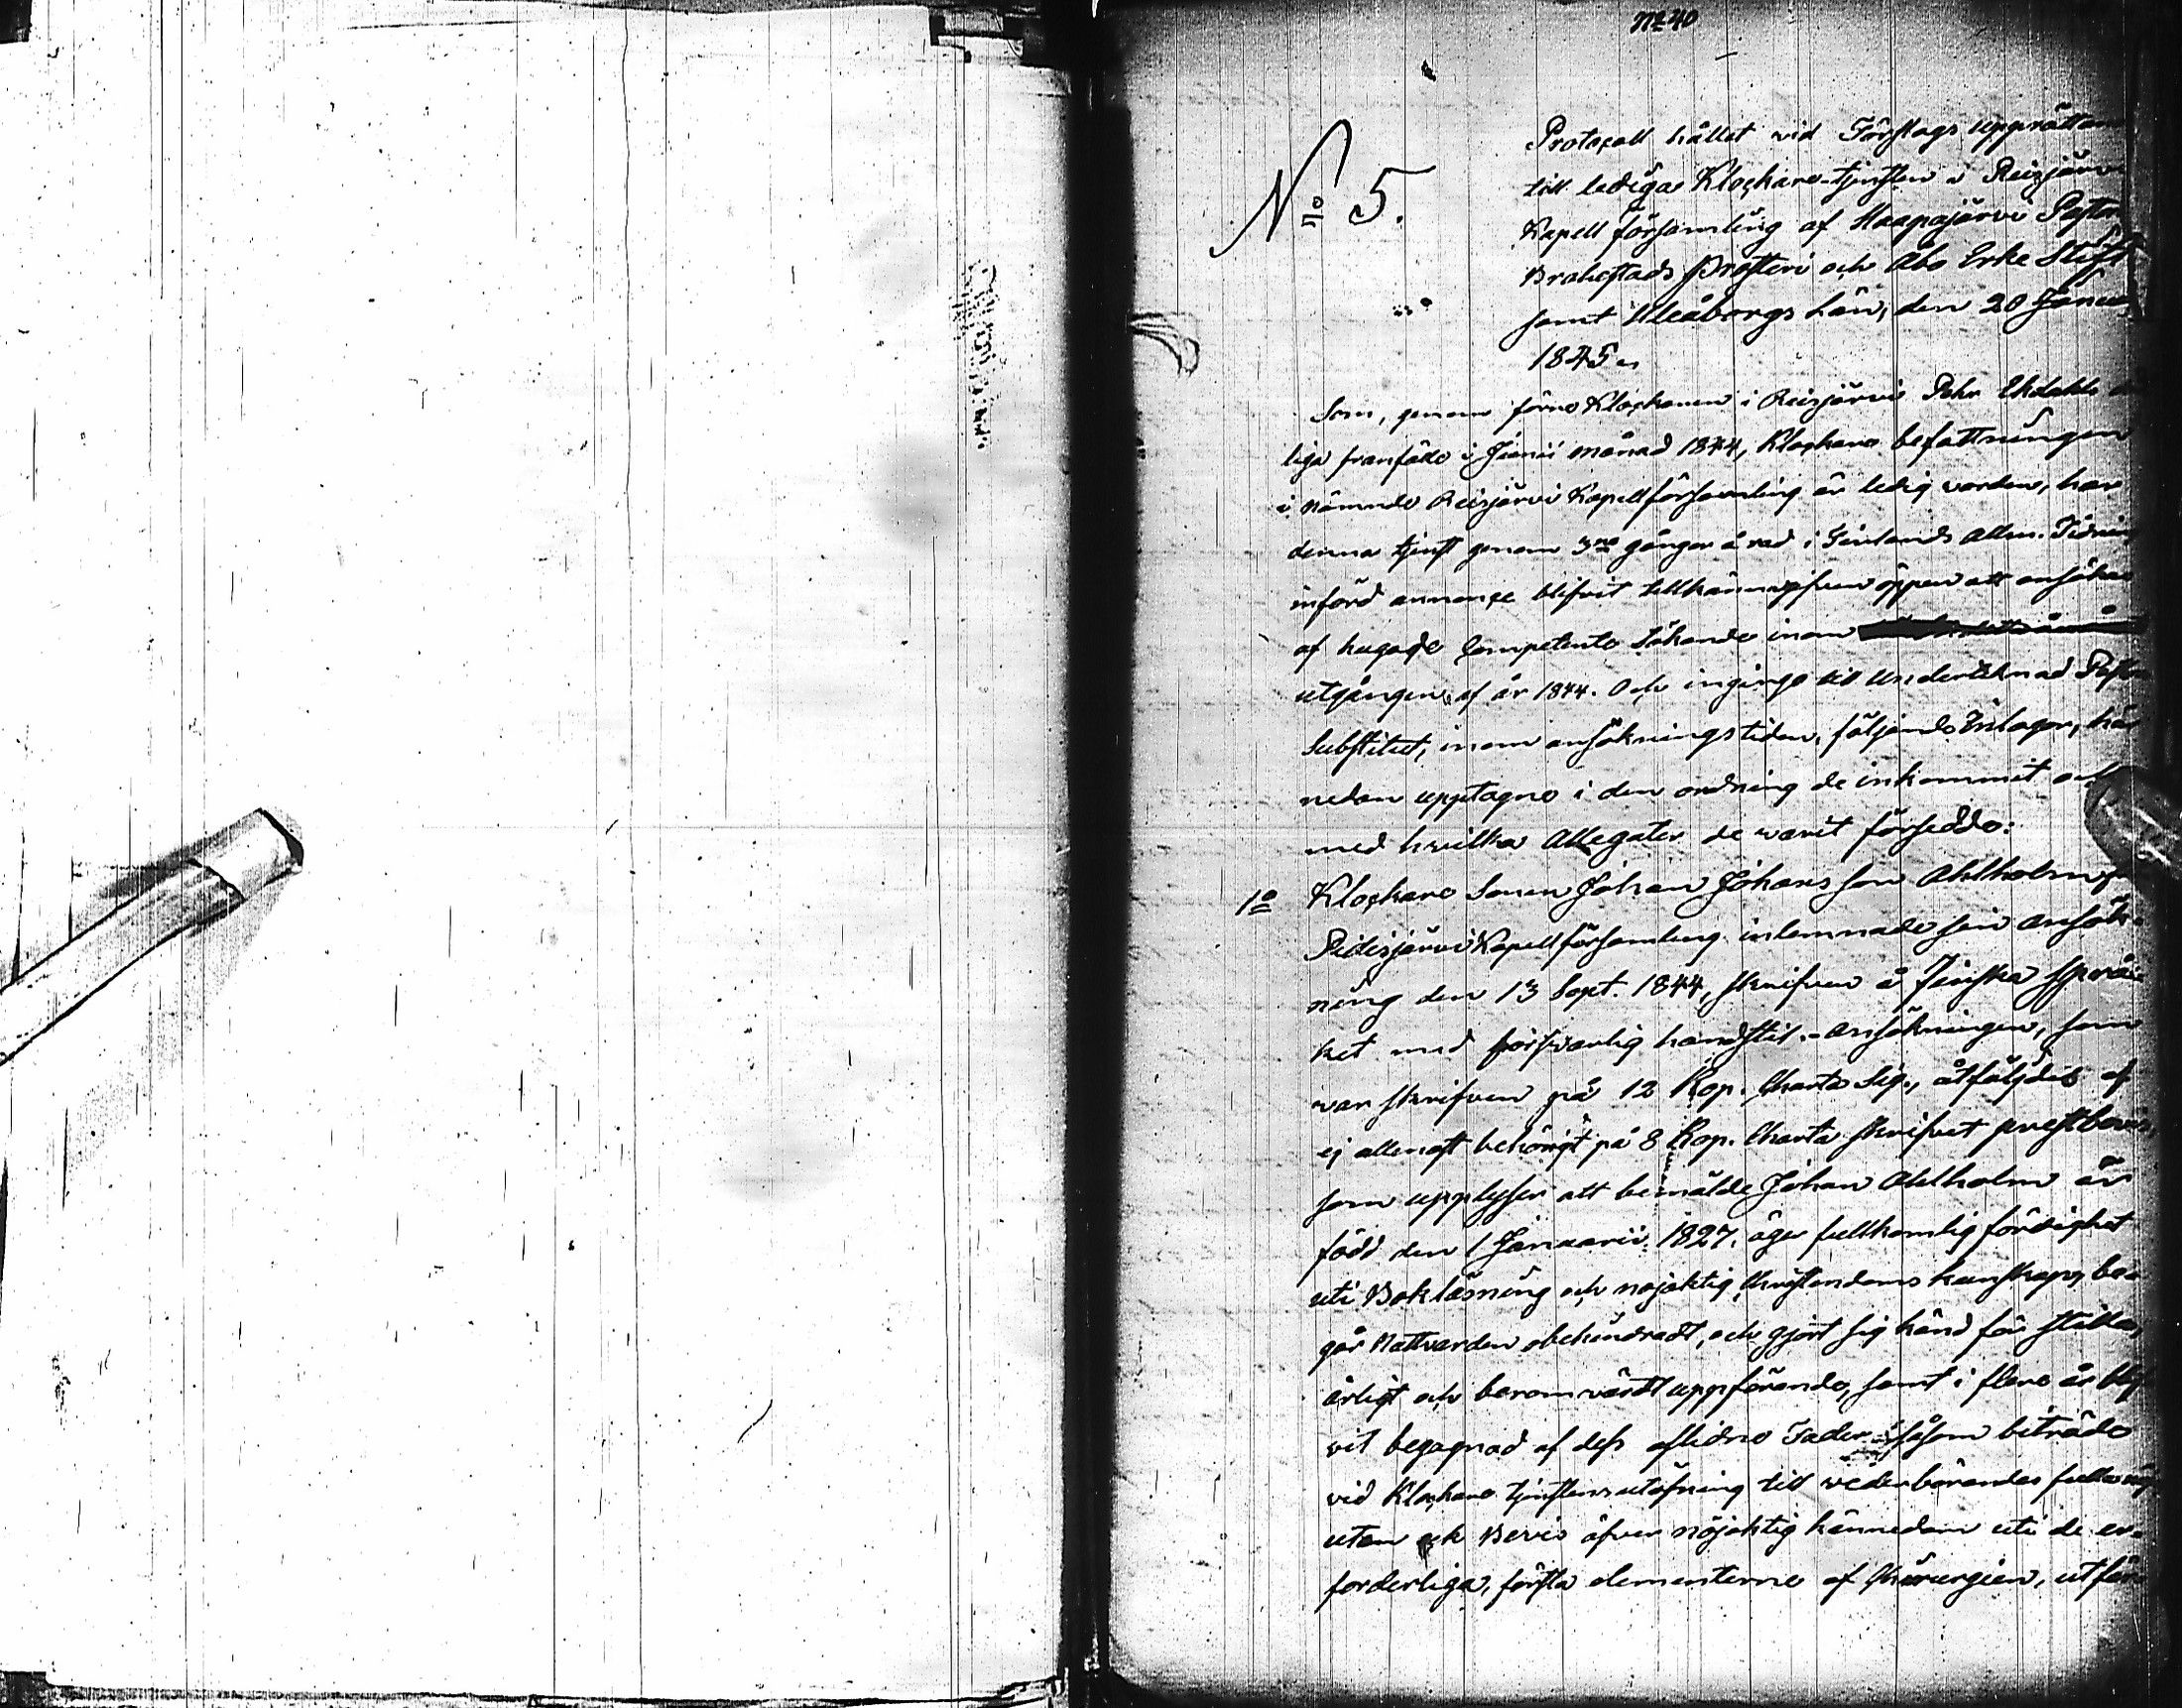 No 40
No 5.
Protocoll hållet vid Förslags upprättan
till lediga Klockare-tjensten i Reisjärvi
Kapell församling af Haapajärvi Pastor
Brahestads Prosteri och Åbo Erke Stift
samt Uleåborgs Län, den 20 Janua
1845.
Som, genom förre Klockaren i Reisjärvi Pehr Ekdahls
liga franfälle i Junii månad 1844, Klockare befattningen
i nämnde Reisjärvi Kapellförsamling är ledig vorden, har
denna tjenst genom 3ne gånger å rad i Finlands Allm. Tidnin
införd annonçe blifvit tillkännagifven öppen att ansökas
af hugade Competente Sökande inom
utgången af år 1844. Och ingingo till undertecknad Pastor
Substitut, inom ansökningstiden, följande Inlagor, här
nedan upptagne i den ordning de inkommit och
med hvilka Allegater de warit försedde:
1o Klockare Sonen Johan Johansson Ahlholm
Pidisjärvi Kapellförsamling inlemnade sin ansök-
ning den 13 Sept. 1844, skrifven å Finska språ-
ket med försvarlig handstil. - Ansökningen, som
war skrifven på 12 Kop. Charta Sig., åtföljdes af
ej allenast behörigt på 8 Kop. Charta skrifvet prestbevis,
som upplyser att bemälde Johan Ahlholm är
född den 1 Januarii 1827, äger fullkomlig färdighet
uti Bokläsning och nöjaktig Christendoms kunskap, be-
går Nattvarden obehindradt, och gjort sig känd för stilla,
ärligt och berömvärdt uppförande, samt i flere år blif
vit begagnad af dess aflidne Fader såsom biträde
vid Klockare tjenstens utöfning till vederbörandes fulla nöje
utan ock Bevis öfver nöjaktig kännedom uti de er-
forderliga, första elementerne af Chirurgien, utfär